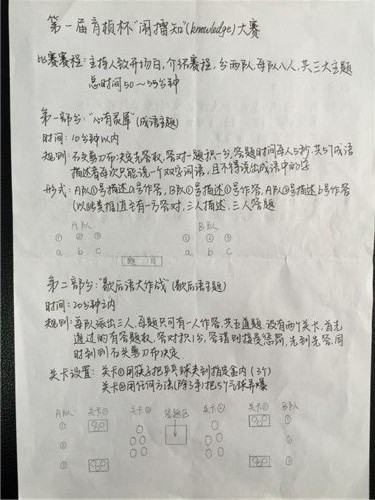 第一届育桢杯"闹播知"(knowledge)大赛
比赛赛程:主持人致开场白,介绍赛程,台两队,每队八人,共三大主题
总时间50~55分钟
第一部分:"心有灵犀"(成语主题)
时间:10分钟以内
规则:石头剪刀布决定先答权,答对一题积一分,答题时间每人5秒,共5个成语
描述者每次只能说一个双字词语,且不得说出成语中的字
形式:A队①号描述a号作答,B队①号描述①号作答,A队②号描述b号作答
(以此类推)直至有一方答对,三人描述,三人答题
A队 B队
① ② ③ ① ② ③
a b c a b c
题 目
第二部分:"歇后语大作战"(歇后语主题)
时间:20分钟之内
规则:每队派出三人,每题只可有一人作答,共五道题,设有两个关卡,首先
通过的有答题权,答对积1分,答错则接受惩罚,先到先答,同
时到则石头剪刀布决定
关卡设置:关卡①用筷子把乒乓球夹到指定盒内(3个)
关卡②用任何方法(除了手)把5个气球弄爆
A队 关卡① 关卡② 答题区 关卡② 关卡① B队
① ①
② ②
③ ③